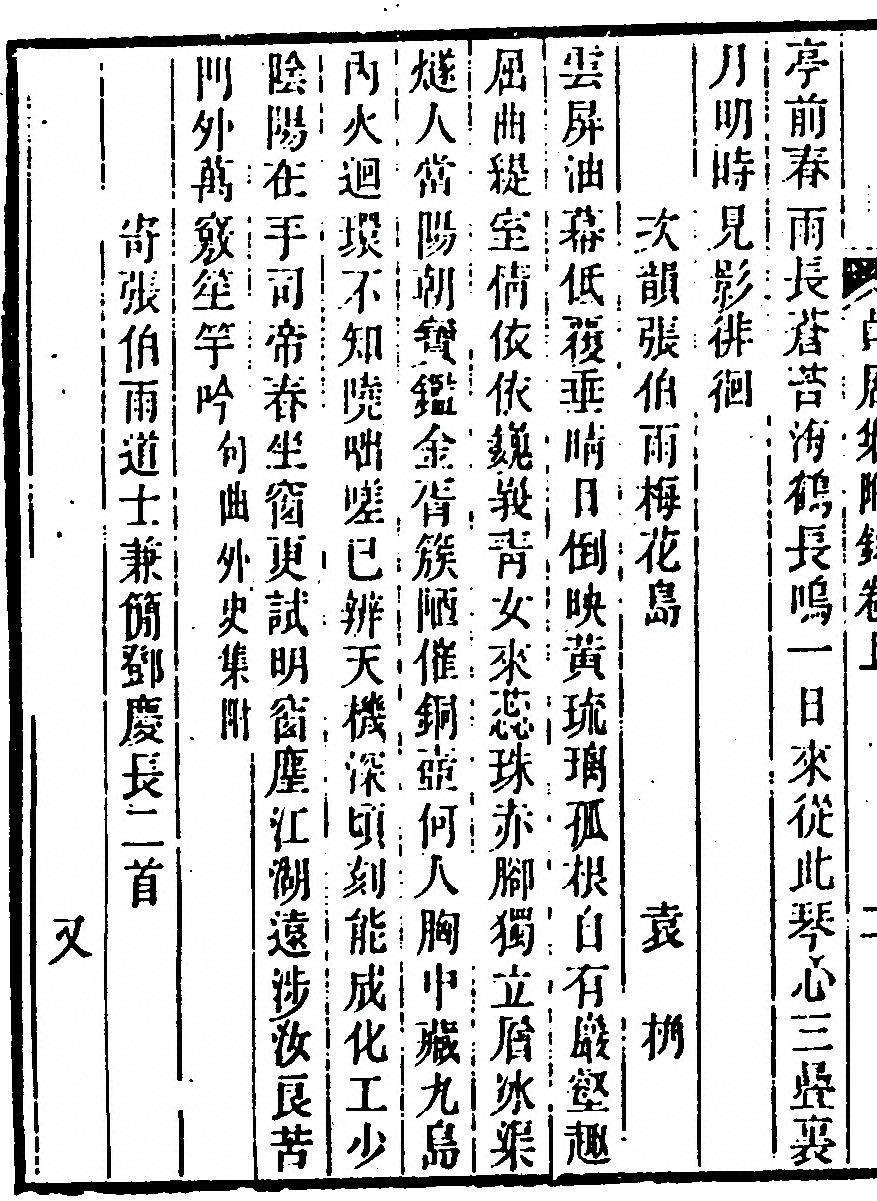 貞居集附錄卷上 二
亭前春雨長蒼苔海鶴長鳴一日來從此琴心三疊裏
月明時見影徘徊
次韻張伯雨梅花島 袁桷
雲屏油幕低覆垂晴日倒映黃琉璃孤根自有巖壑趣
屈曲緹室情依依巍峩青女來蕊珠赤腳獨立層冰渠
燧人當陽朝寶鑑金胥簇陋催銅壺何人胸中藏九島
內火迴環不知曉咄嗟已辨天機深頃刻能成化工少
陰陽在手司帝春坐窗更試明窗塵江湖遠涉汝良苦
門外萬竅笙竽吟 句曲外史集附
寄張伯雨道士兼簡鄧慶長二首
又